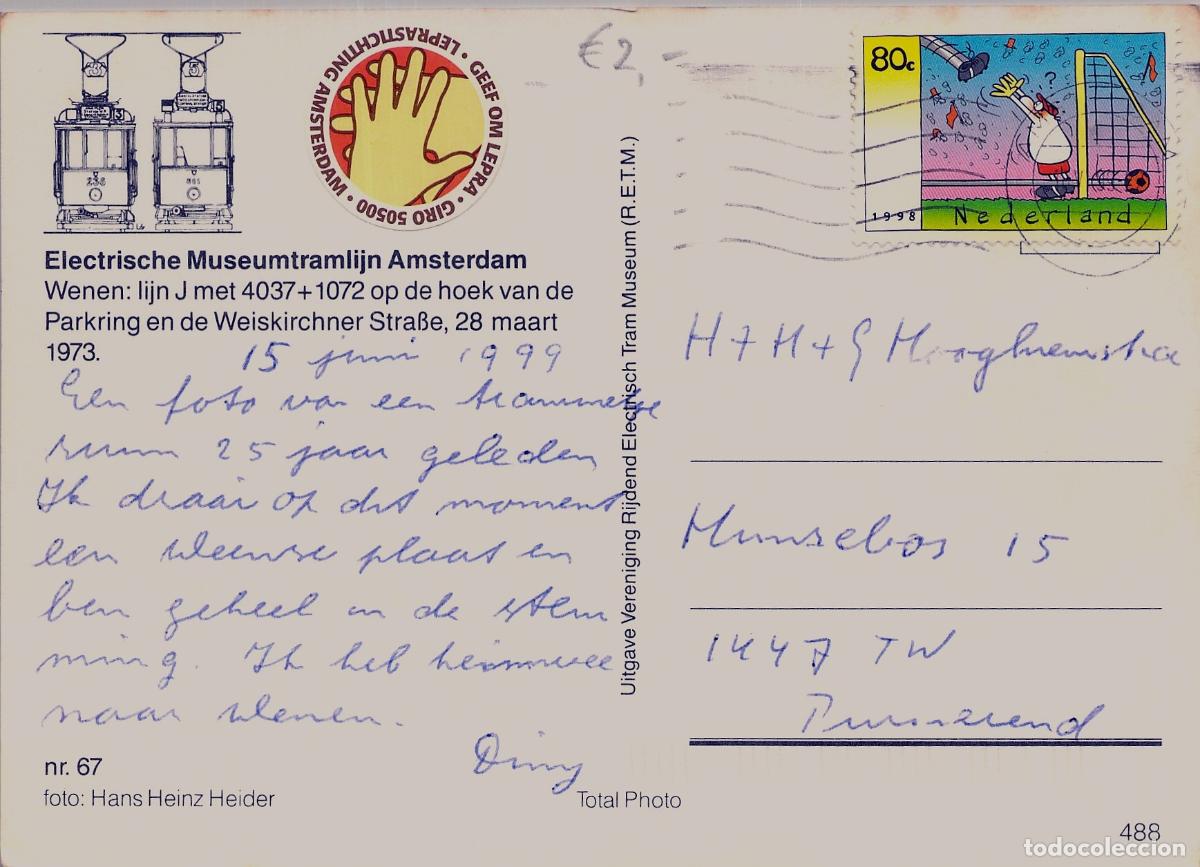 GEEF OM LEPRA • GIRO 50500 • LEPRASTICHTING AMSTERDAM •
€2,-
80c
1998 Nederland
?
Electrische Museumtramlijn Amsterdam
Wenen: lijn J met 4037+1072 op de hoek van de
Parkring en de Weiskirchner Straße, 28 maart
1973.
15 juni 1999
Een foto van een
ruim 25 jaar geleden
Ik draai op dit moment
een Weense plaat en
ben geheel in de stem
ming. Ik heb heimwee
naar Wenen.
Diny
nr. 67
foto: Hans Heinz Heider
Total Photo
Uitgave Vereniging Rijdend Electrisch Tram Museum (R.E.T.M.)
H + H + G
15
1447 TW
Purmerend
488
todocoleccion